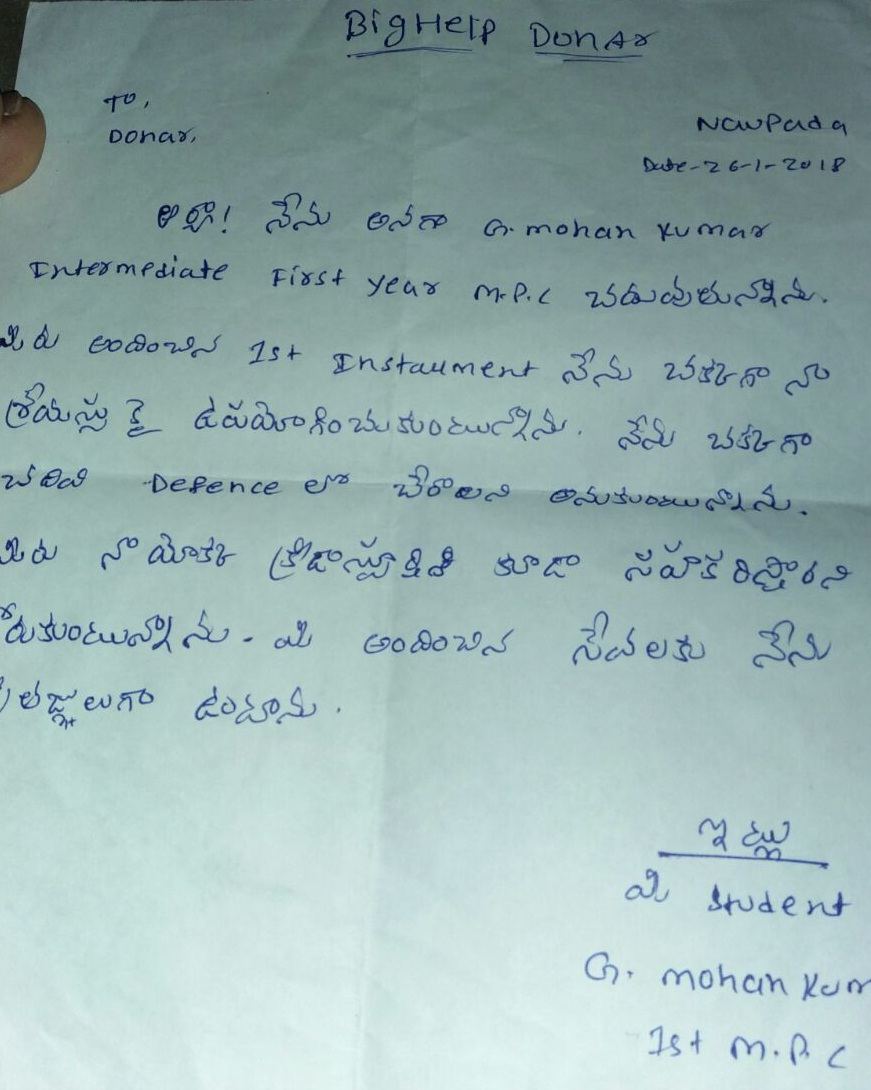 BigHelp Donar
To,
Donar,
Nawpada
Date-26-1-2018
ఆర్యా! నేను అనగా G. mohan kumar
Intermediate First year M.P.C చదువుతున్నాను.
మీరు అందించిన 1st Instaument నేను చక్కగా నా
శ్రేయస్సు కై ఉపయోగించుకుంటున్నాను. నేను చక్కగా
చదివి Defence లో చేరాలని అనుకుంటున్నాను.
మీరు నా యొక్క క్రీడాస్ఫూర్తికి కూడా సహకరిస్తారని
కోరుకుంటున్నాను. మీ అందించిన సేవలకు నేను
కృతజ్ఞులుగా ఉంటాను.
ఇట్లు
మీ student
G. mohan Kum
1st M.P.C